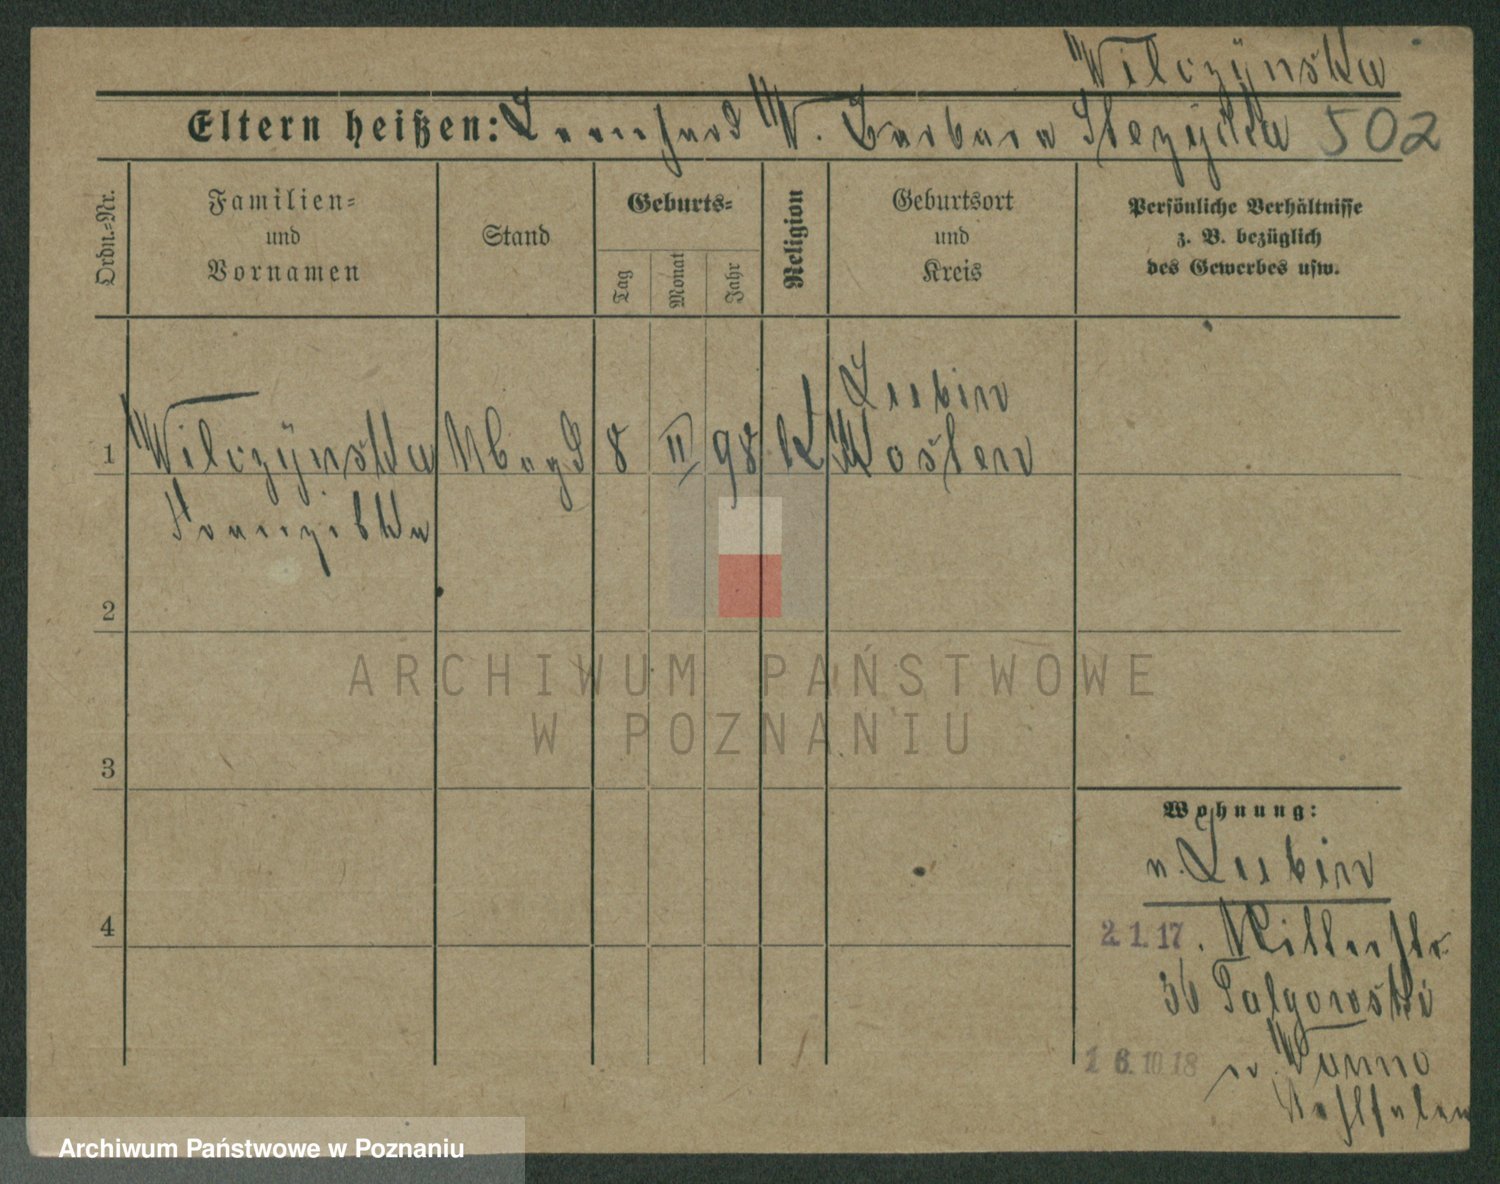 Wilczÿnska
Eltern heißen: Leonhard W. Barbara Stezÿcka 502
Ordn.-Nr.
Familien-
und
Vornamen
Stand
Geburts-
Tag
Monat
Jahr
Religion
Geburtsort
und
Kreis
Persönliche Verhältnisse
z. B. bezüglich
des Gewerbes usw.
Lubin
1 Wilczÿnska Magd 8 II 98 K Kosten
Franziska
2
3
4
Wohnung:
v. Lubin
2.1.17. Ritterstr.
36 Talgowski
16.10.18 n. Wanne
Westfalen
ARCHIWUM PAŃSTWOWE
W POZNANIU
Archiwum Państwowe w Poznaniu